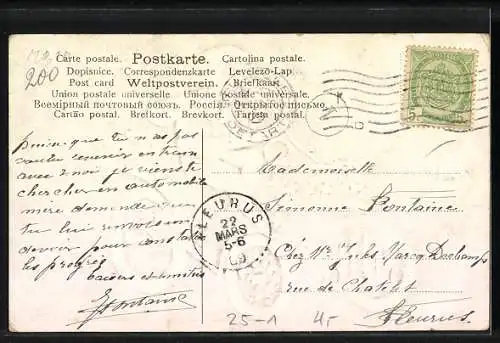 200
Carte postale. Postkarte. Cartolina postale.
Dopisnice. Correspondenzkarte Levelezo-Lap
Post card Weltpostverein. Briefkaart
Union postale universelle. Unione postale universale.
Всемірный почтовый союзъ. Россія. Открытое письмо.
Cartão postal. Brefkort. Brevkort. Tarjeta postal.
puisque tu n'as pas
voulu revenir en train
avec moi je viens te
chercher en automobile
mère demande que
tu lui
devoir pour constater
les progrès
baisers et amitiés
Fontaine
Mademoiselle
Simonne Fontaine
Chez Mr Jules Marcq Dechamps
rue de Chatelet
Fleurus
FLEURUS
22
MARS
5-6
5
5
25-1
4,-